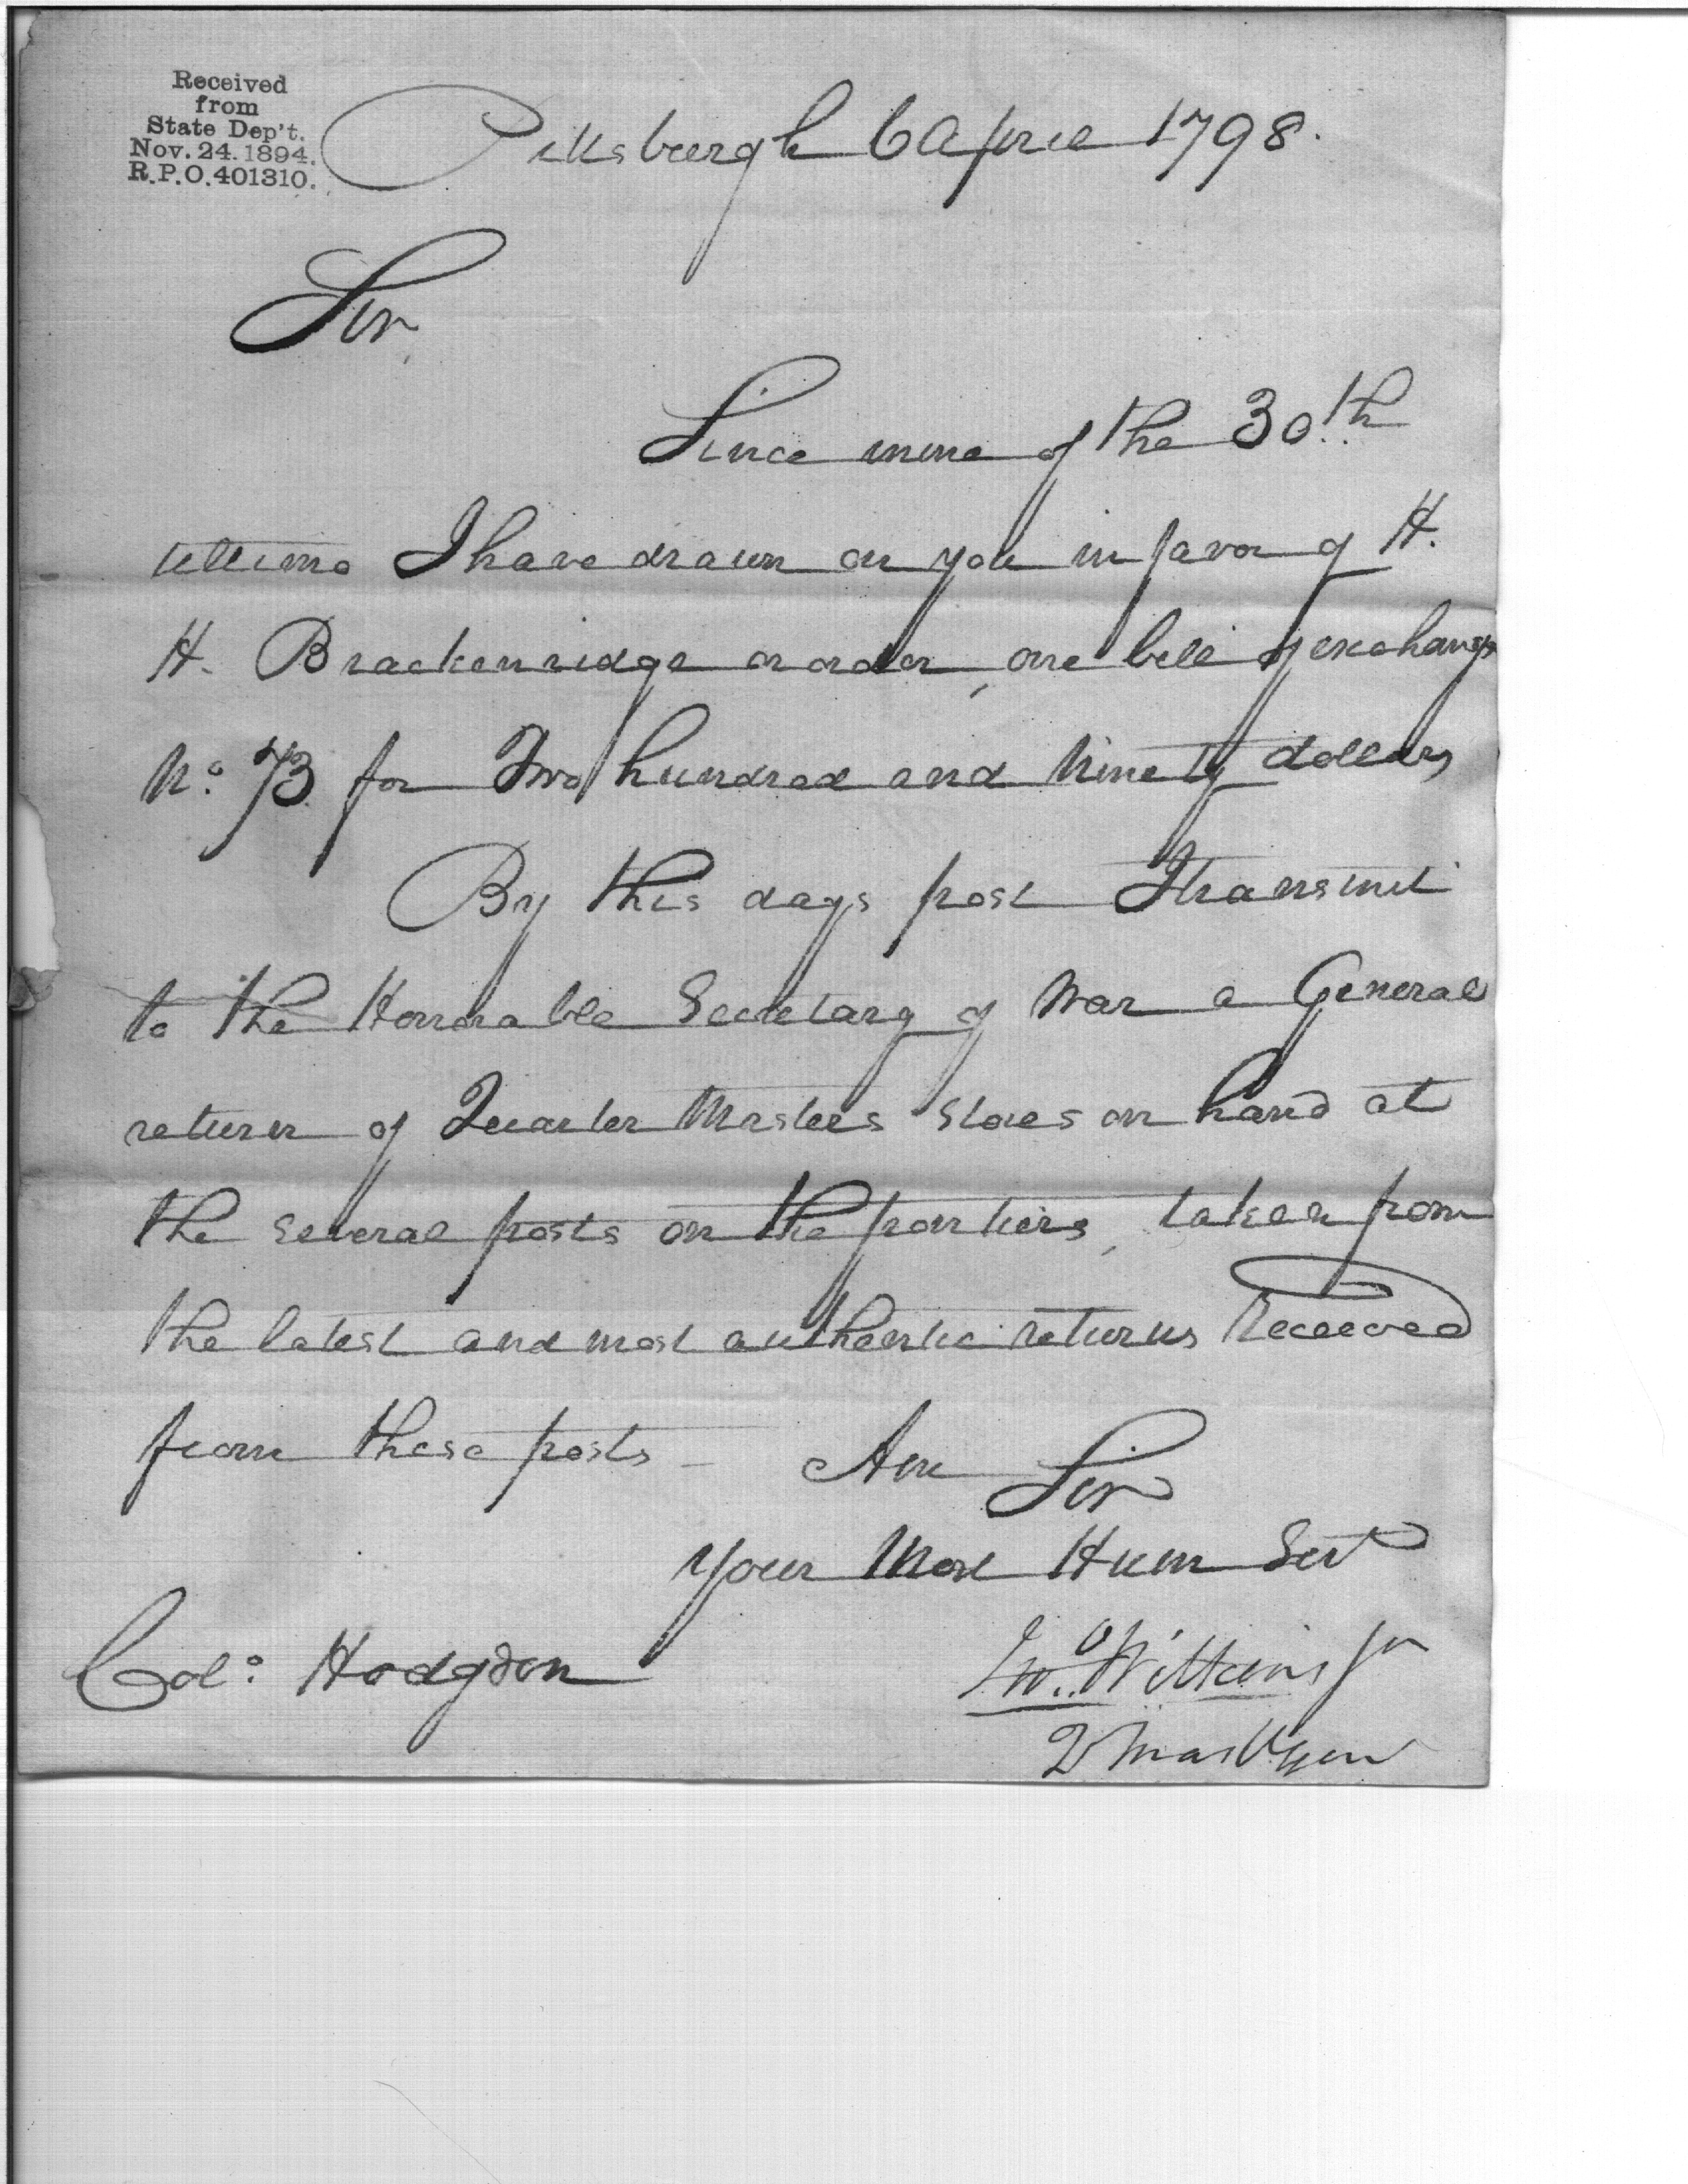 Received
from
State Dep't.
Nov. 24. 1894.
R.P.O. 401310.
Pittsburgh 6 April 1798.
Sir
Since mine of the 30th
ultimo I have drawn on you in favor of H.
H. Brackenridge or order, one bill of exchange
No. 73 for Two hundred and Ninety dollars
By this days post I transmit
to the Honorable Secretary of War a General
return of Quarter Masters Stores on hand at
the several posts on the frontiers, taken from
the latest and most authentic returns Received
from these posts - Am Sir
your Most Hum Sert
Colo. Hodgdon
Jno. Wilkins Jr
Q Mast Gen